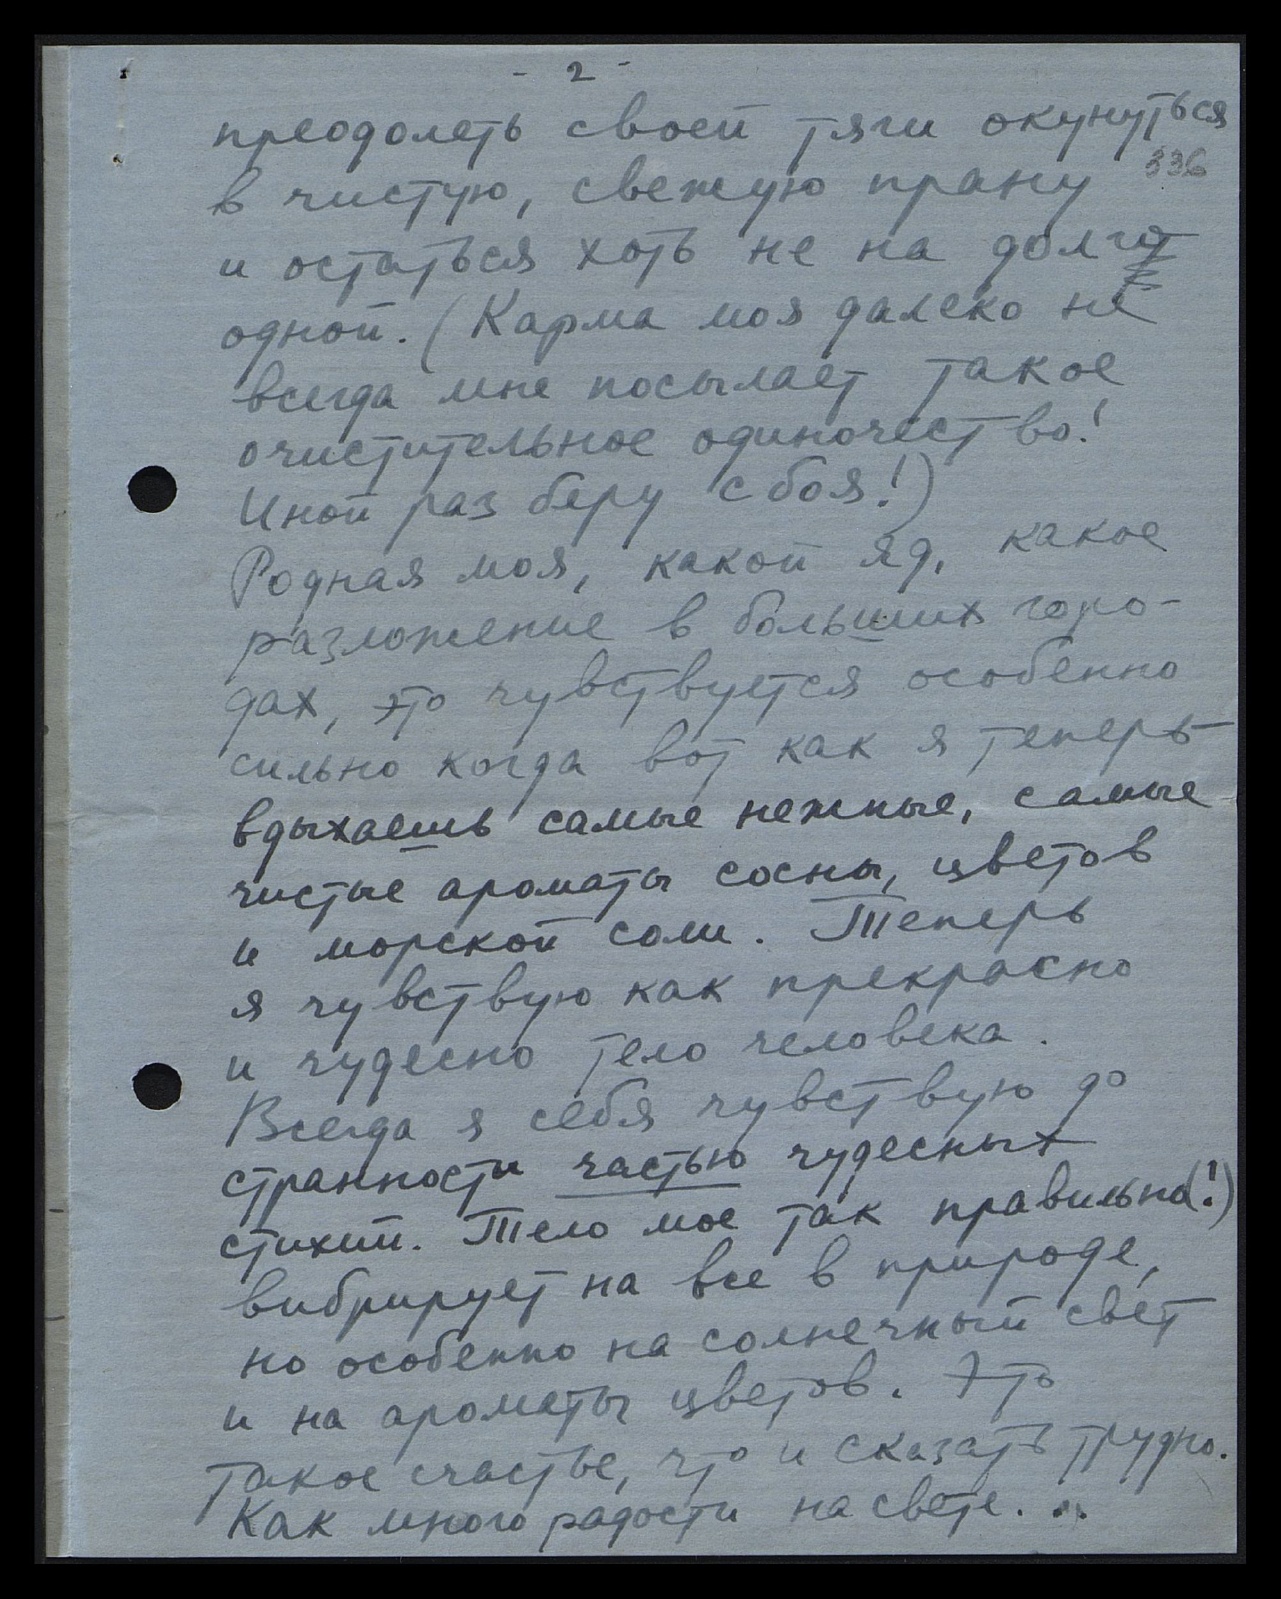 - 2 -
преодолеть своей тяги окунуться
336
в чистую, свежую прану
и остаться хоть не на долго
одной. (Карма моя далеко не
всегда мне посылает такое
очистительное одиночество!
Иной раз беру с боя!)
Родная моя, какой яд, какое
разложение в больших горо-
дах, это чувствуется особенно
сильно когда вот как я теперь
вдыхаешь самые нежные, самые
чистые ароматы сосны, цветов
и морской соли. Теперь
я чувствую как прекрасно
и чудесно тело человека.
Всегда я себя чувствую до
странности частью чудесных
стихий. Тело мое так правильно(!)
вибрирует на все в природе,
но особенно на солнечный свет
и на ароматы цветов. Это
такое счастье, что и сказать трудно.
Как много радости на свете...